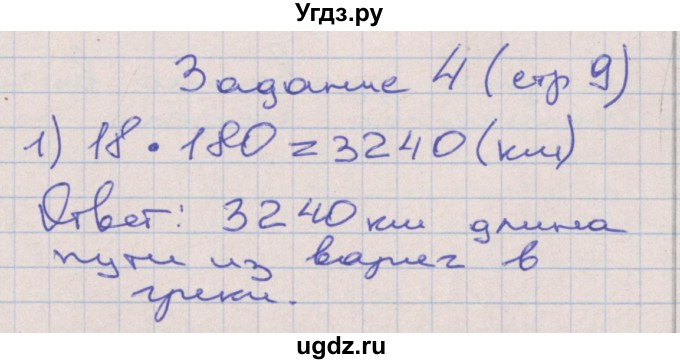 Угдз.ру
Задание 4 (стр 9)
1) 18 • 180 = 3240 (км)
Ответ: 3240 км длина
пути из варяг в
греки.
ugdz.ru